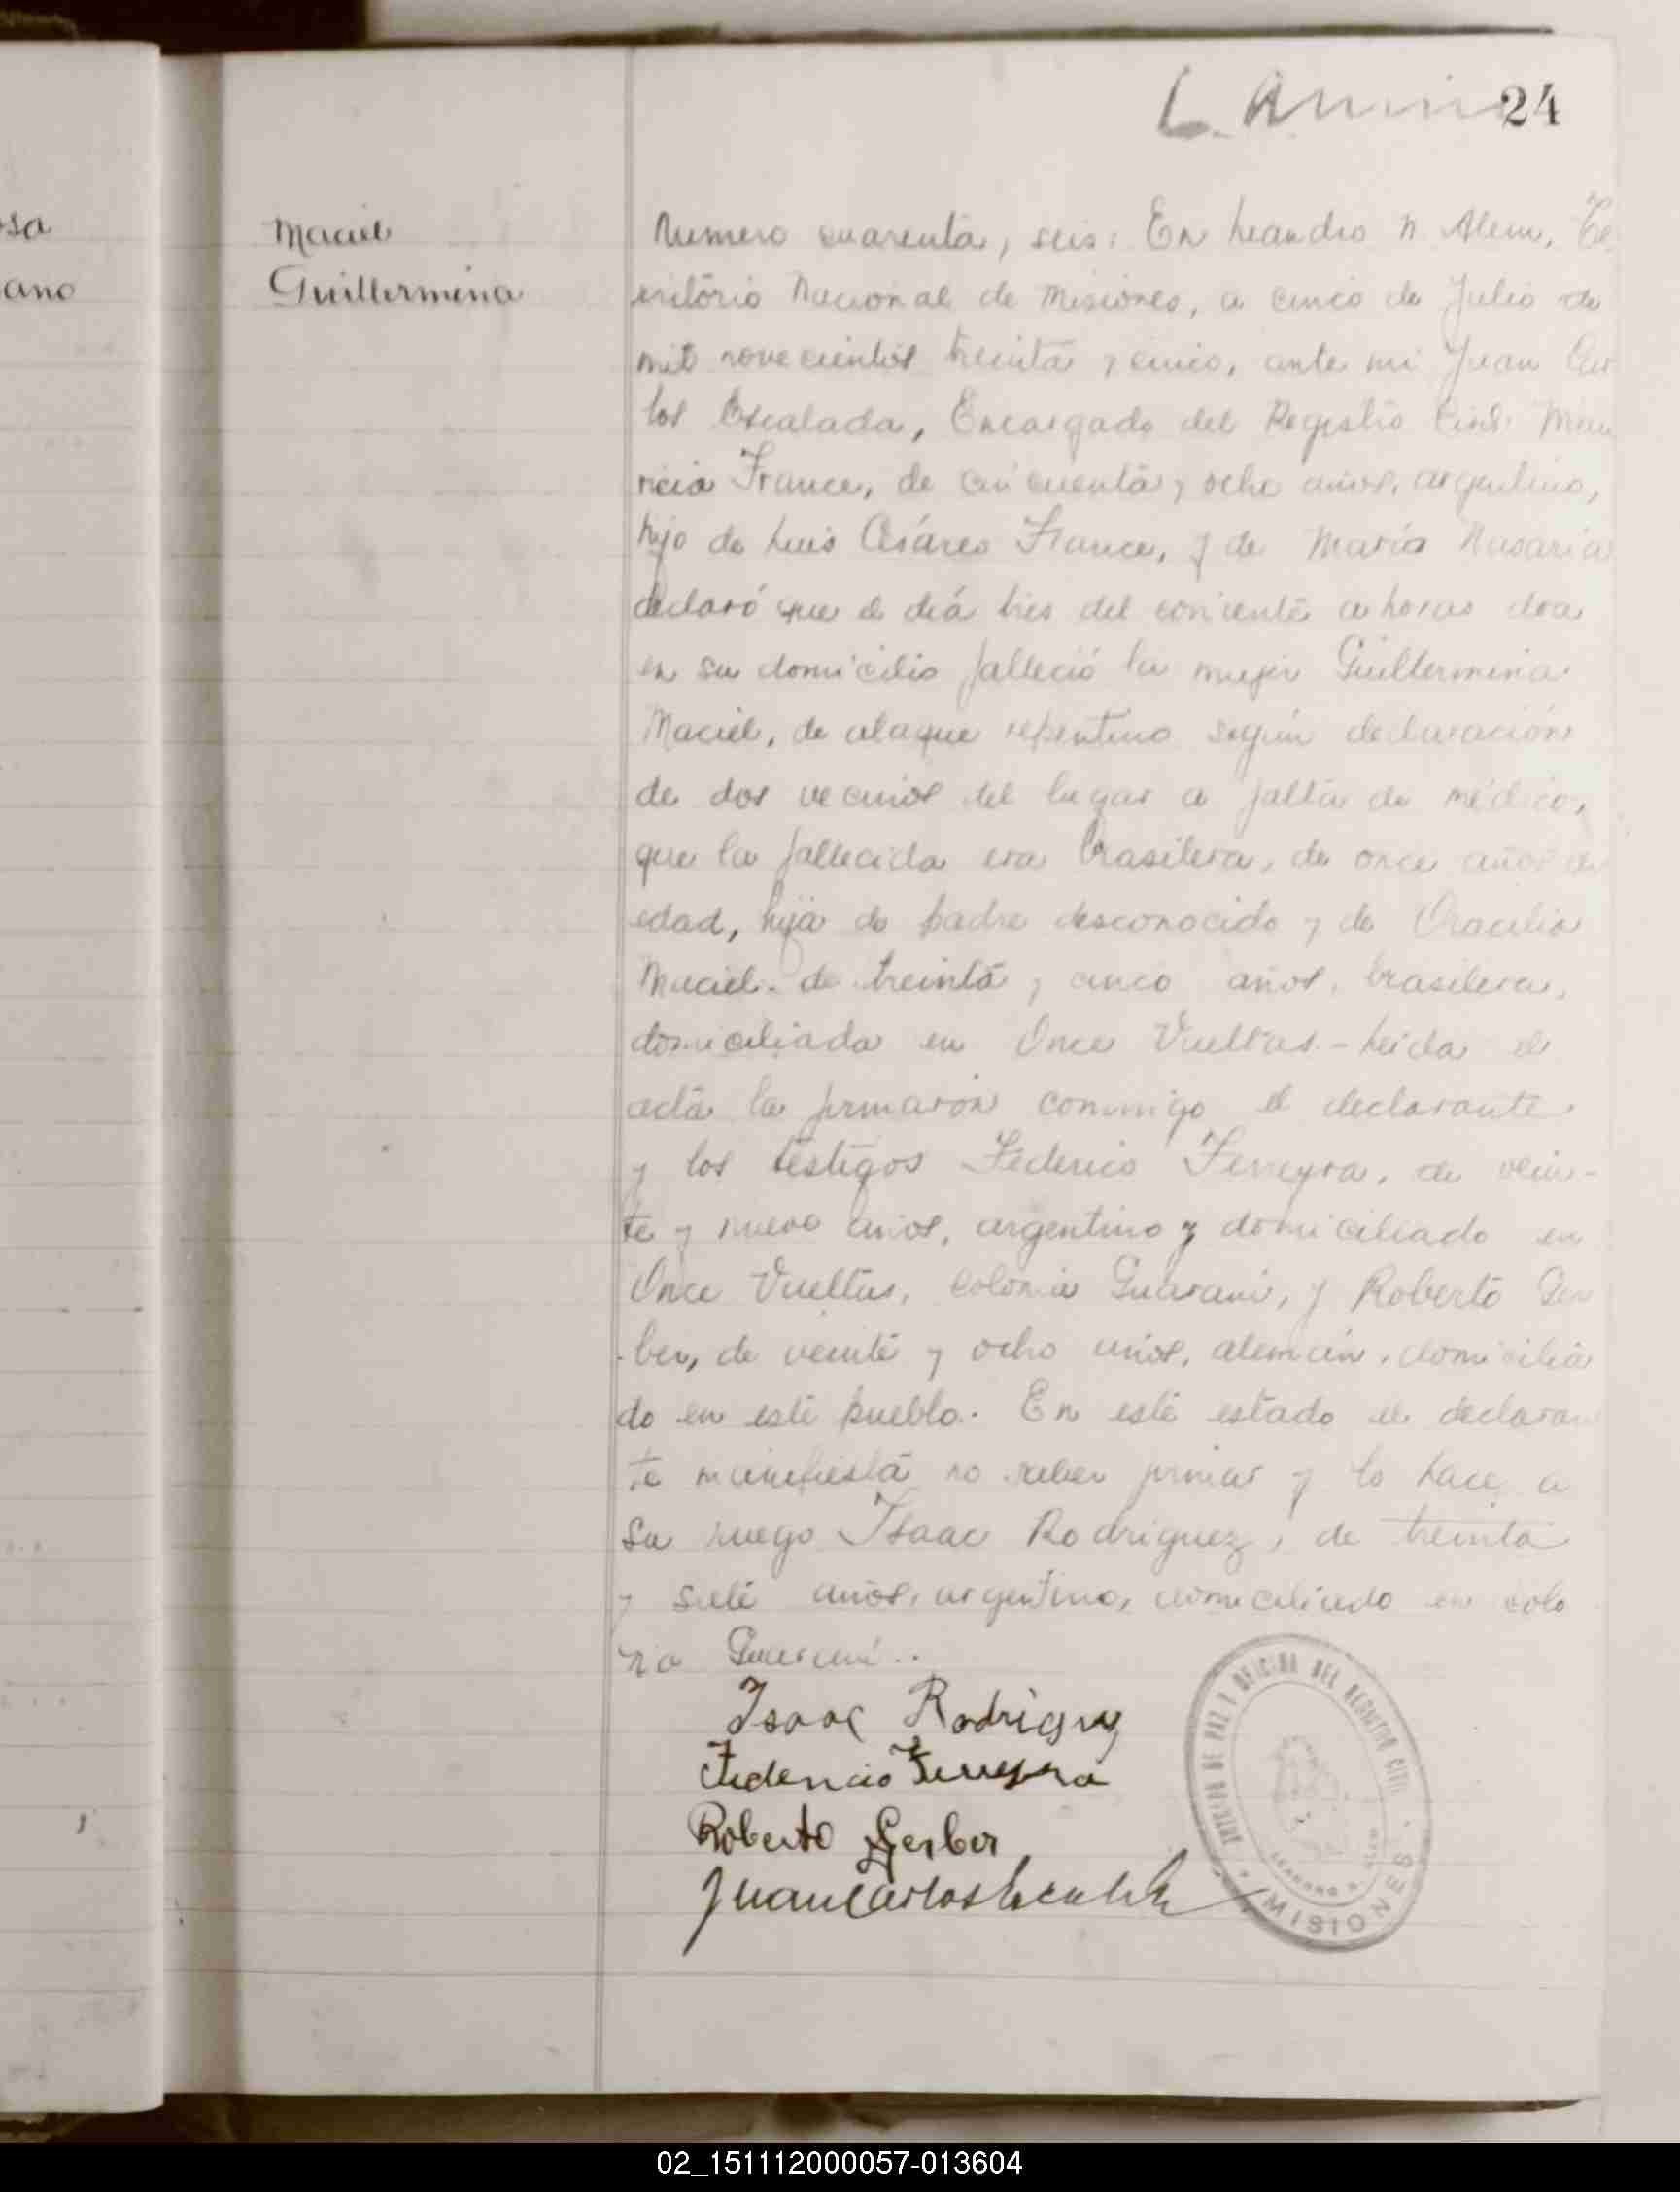 24
osa
ano
Maciel
Guillermina
Numero cuarenta y seis: En Leandro N. Alem, Te
rritorio Nacional de Misiones, a cinco de Julio de
mil novecientos treinta y cinco, ante mi Juan Car
los Escalada, Encargado del Registro Civil: Mau
ricio France, de cincuenta y ocho años, argentino,
hijo de Luis Cesáreo France, y de María Nasaria
declaró que el día tres del corriente a horas doce
en su domicilio falleció la mujer Guillermina
Maciel, de ataque repentino según declaración
de dos vecinos del lugar a falta de médico,
que la fallecida era brasilera, de once años de
edad, hija de padre desconocido y de Oracilia
Maciel. de treinta y cinco años, brasilera,
domiciliada en Once Vueltas.- Leida el
acta la firmaron conmigo el declarante
y los testigos Federico Ferreyra, de vein-
te y nueve años, argentino y domiciliado en
Once Vueltas, colonia Guarani, y Roberto Ger
ber, de veinte y ocho años, alemán, domicilia
do en este pueblo. En este estado el declaran
te manifiesta no saber firmar y lo hace a
su ruego Isaac Rodriguez, de treinta
y siete años, argentino, domiciliado en colo
nia Guarani..
Isaac Rodriguez
Federico Ferreyra
Roberto Gerber
Juan Carlos Escalada
JUZGADO DE PAZ Y OFICINA DEL REGISTRO CIVIL
LEANDRO N. ALEM
MISIONES
02_151112000057-013604